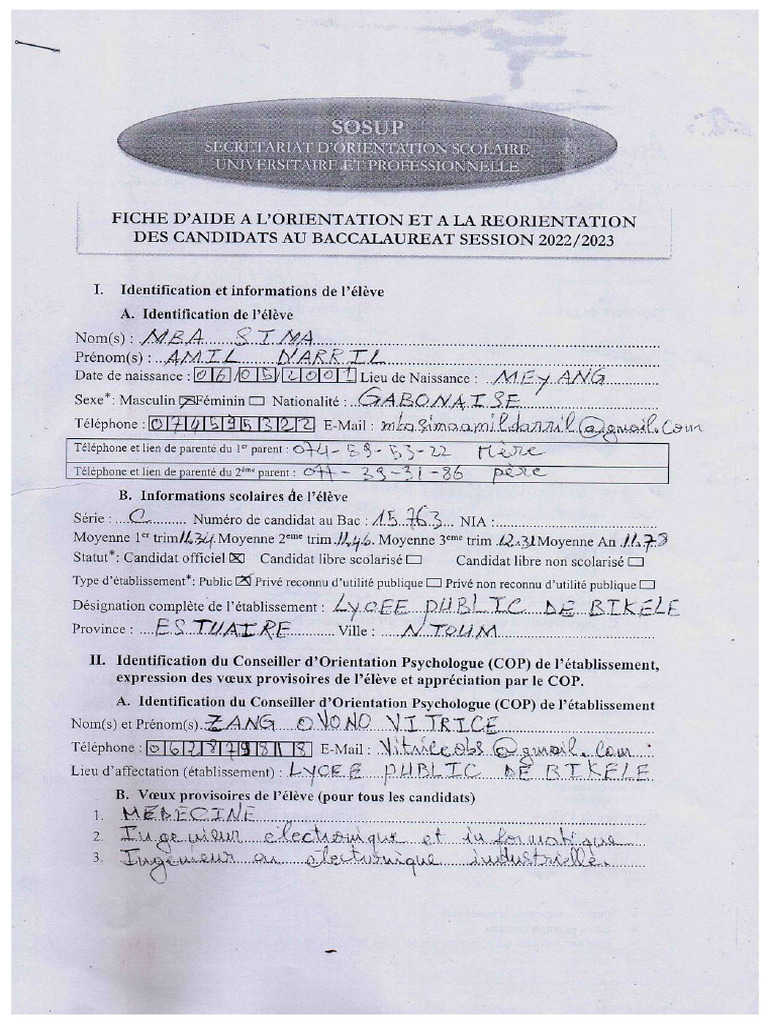 SOSUP
SECRETARIAT D'ORIENTATION SCOLAIRE
UNIVERSITAIRE ET PROFESSIONNELLE
FICHE D'AIDE A L'ORIENTATION ET A LA REORIENTATION
DES CANDIDATS AU BACCALAUREAT SESSION 2022/2023
I. Identification et informations de l'élève
A. Identification de l'élève
Nom(s) : MBA SIMA
Prénom(s) : AMIL DARRIL
Date de naissance : 06/05/2001 Lieu de Naissance : MEYANG
Sexe*: Masculin ☒ Féminin ☐ Nationalité : GABONAISE
Téléphone : 074595322 E-Mail : mbasimaamildarril@gmail.com
Téléphone et lien de parenté du 1er parent : 074-59-53-22 Mère
Téléphone et lien de parenté du 2ème parent : 077-39-31-86 père
B. Informations scolaires de l'élève
Série : C Numéro de candidat au Bac : 15763 NIA :
Moyenne 1er trim 11.34 Moyenne 2eme trim 11.46 Moyenne 3eme trim 12.31 Moyenne An 11.78
Statut*: Candidat officiel ☒ Candidat libre scolarisé ☐ Candidat libre non scolarisé ☐
Type d'établissement*: Public ☒ Privé reconnu d'utilité publique ☐ Privé non reconnu d'utilité publique ☐
Désignation complète de l'établissement : LYCEE PUBLIC DE BIKELE
Province : ESTUAIRE Ville : NTOUM
II. Identification du Conseiller d'Orientation Psychologue (COP) de l'établissement,
expression des vœux provisoires de l'élève et appréciation par le COP.
A. Identification du Conseiller d'Orientation Psychologue (COP) de l'établissement
Nom(s) et Prénom(s) ZANG OVONO VITRICE
Téléphone : 062879818 E-Mail : Vitriceobs@gmail.com
Lieu d'affectation (établissement) : LYCEE PUBLIC DE BIKELE
B. Vœux provisoires de l'élève (pour tous les candidats)
1. MEDECINE
2. Ingenieur électronique et informatique
3. Ingénieur en electronique industrielle.